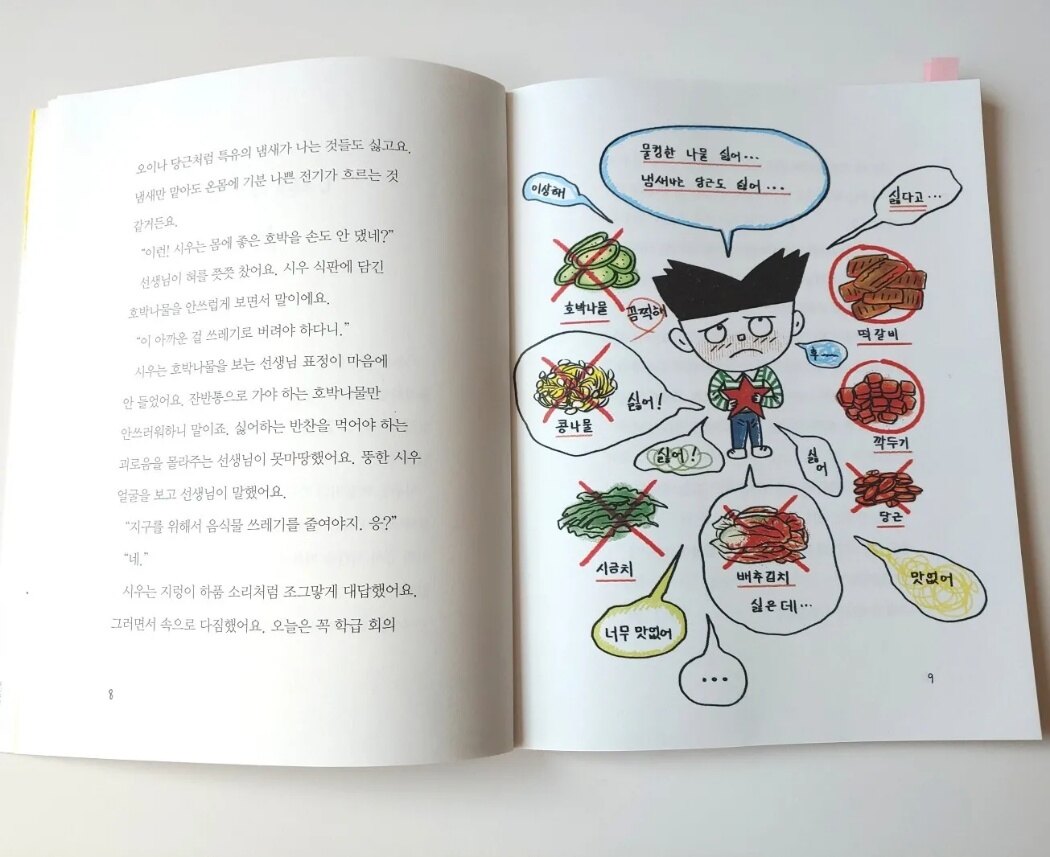 오이나 당근처럼 특유의 냄새가 나는 것들도 싫고요.
냄새만 맡아도 온몸에 기분 나쁜 전기가 흐르는 것
같거든요.
“이런! 시우는 몸에 좋은 호박을 손도 안 댔네?”
선생님이 혀를 쯧쯧 찼어요. 시우 식판에 담긴
호박나물을 안쓰럽게 보면서 말이에요.
“이 아까운 걸 쓰레기로 버려야 하다니.”
시우는 호박나물을 보는 선생님 표정이 마음에
안 들었어요. 잔반통으로 가야 하는 호박나물만
안쓰러워하니 말이죠. 싫어하는 반찬을 먹어야 하는
괴로움을 몰라주는 선생님이 못마땅했어요. 뚱한 시우
얼굴을 보고 선생님이 말했어요.
“지구를 위해서 음식물 쓰레기를 줄여야지. 응?”
“네.”
시우는 지렁이 하품 소리처럼 조그맣게 대답했어요.
그러면서 속으로 다짐했어요. 오늘은 꼭 학급 회의
8
물컹한 나물 싫어...
냄새나는 당근도 싫어...
이상해
싫다고...
호박나물
끔찍해
떡갈비
후~
콩나물
싫어!
깍두기
싫어!
싫어
당근
시금치
배추김치
싫은데...
맛없어
너무 맛없어
...
9